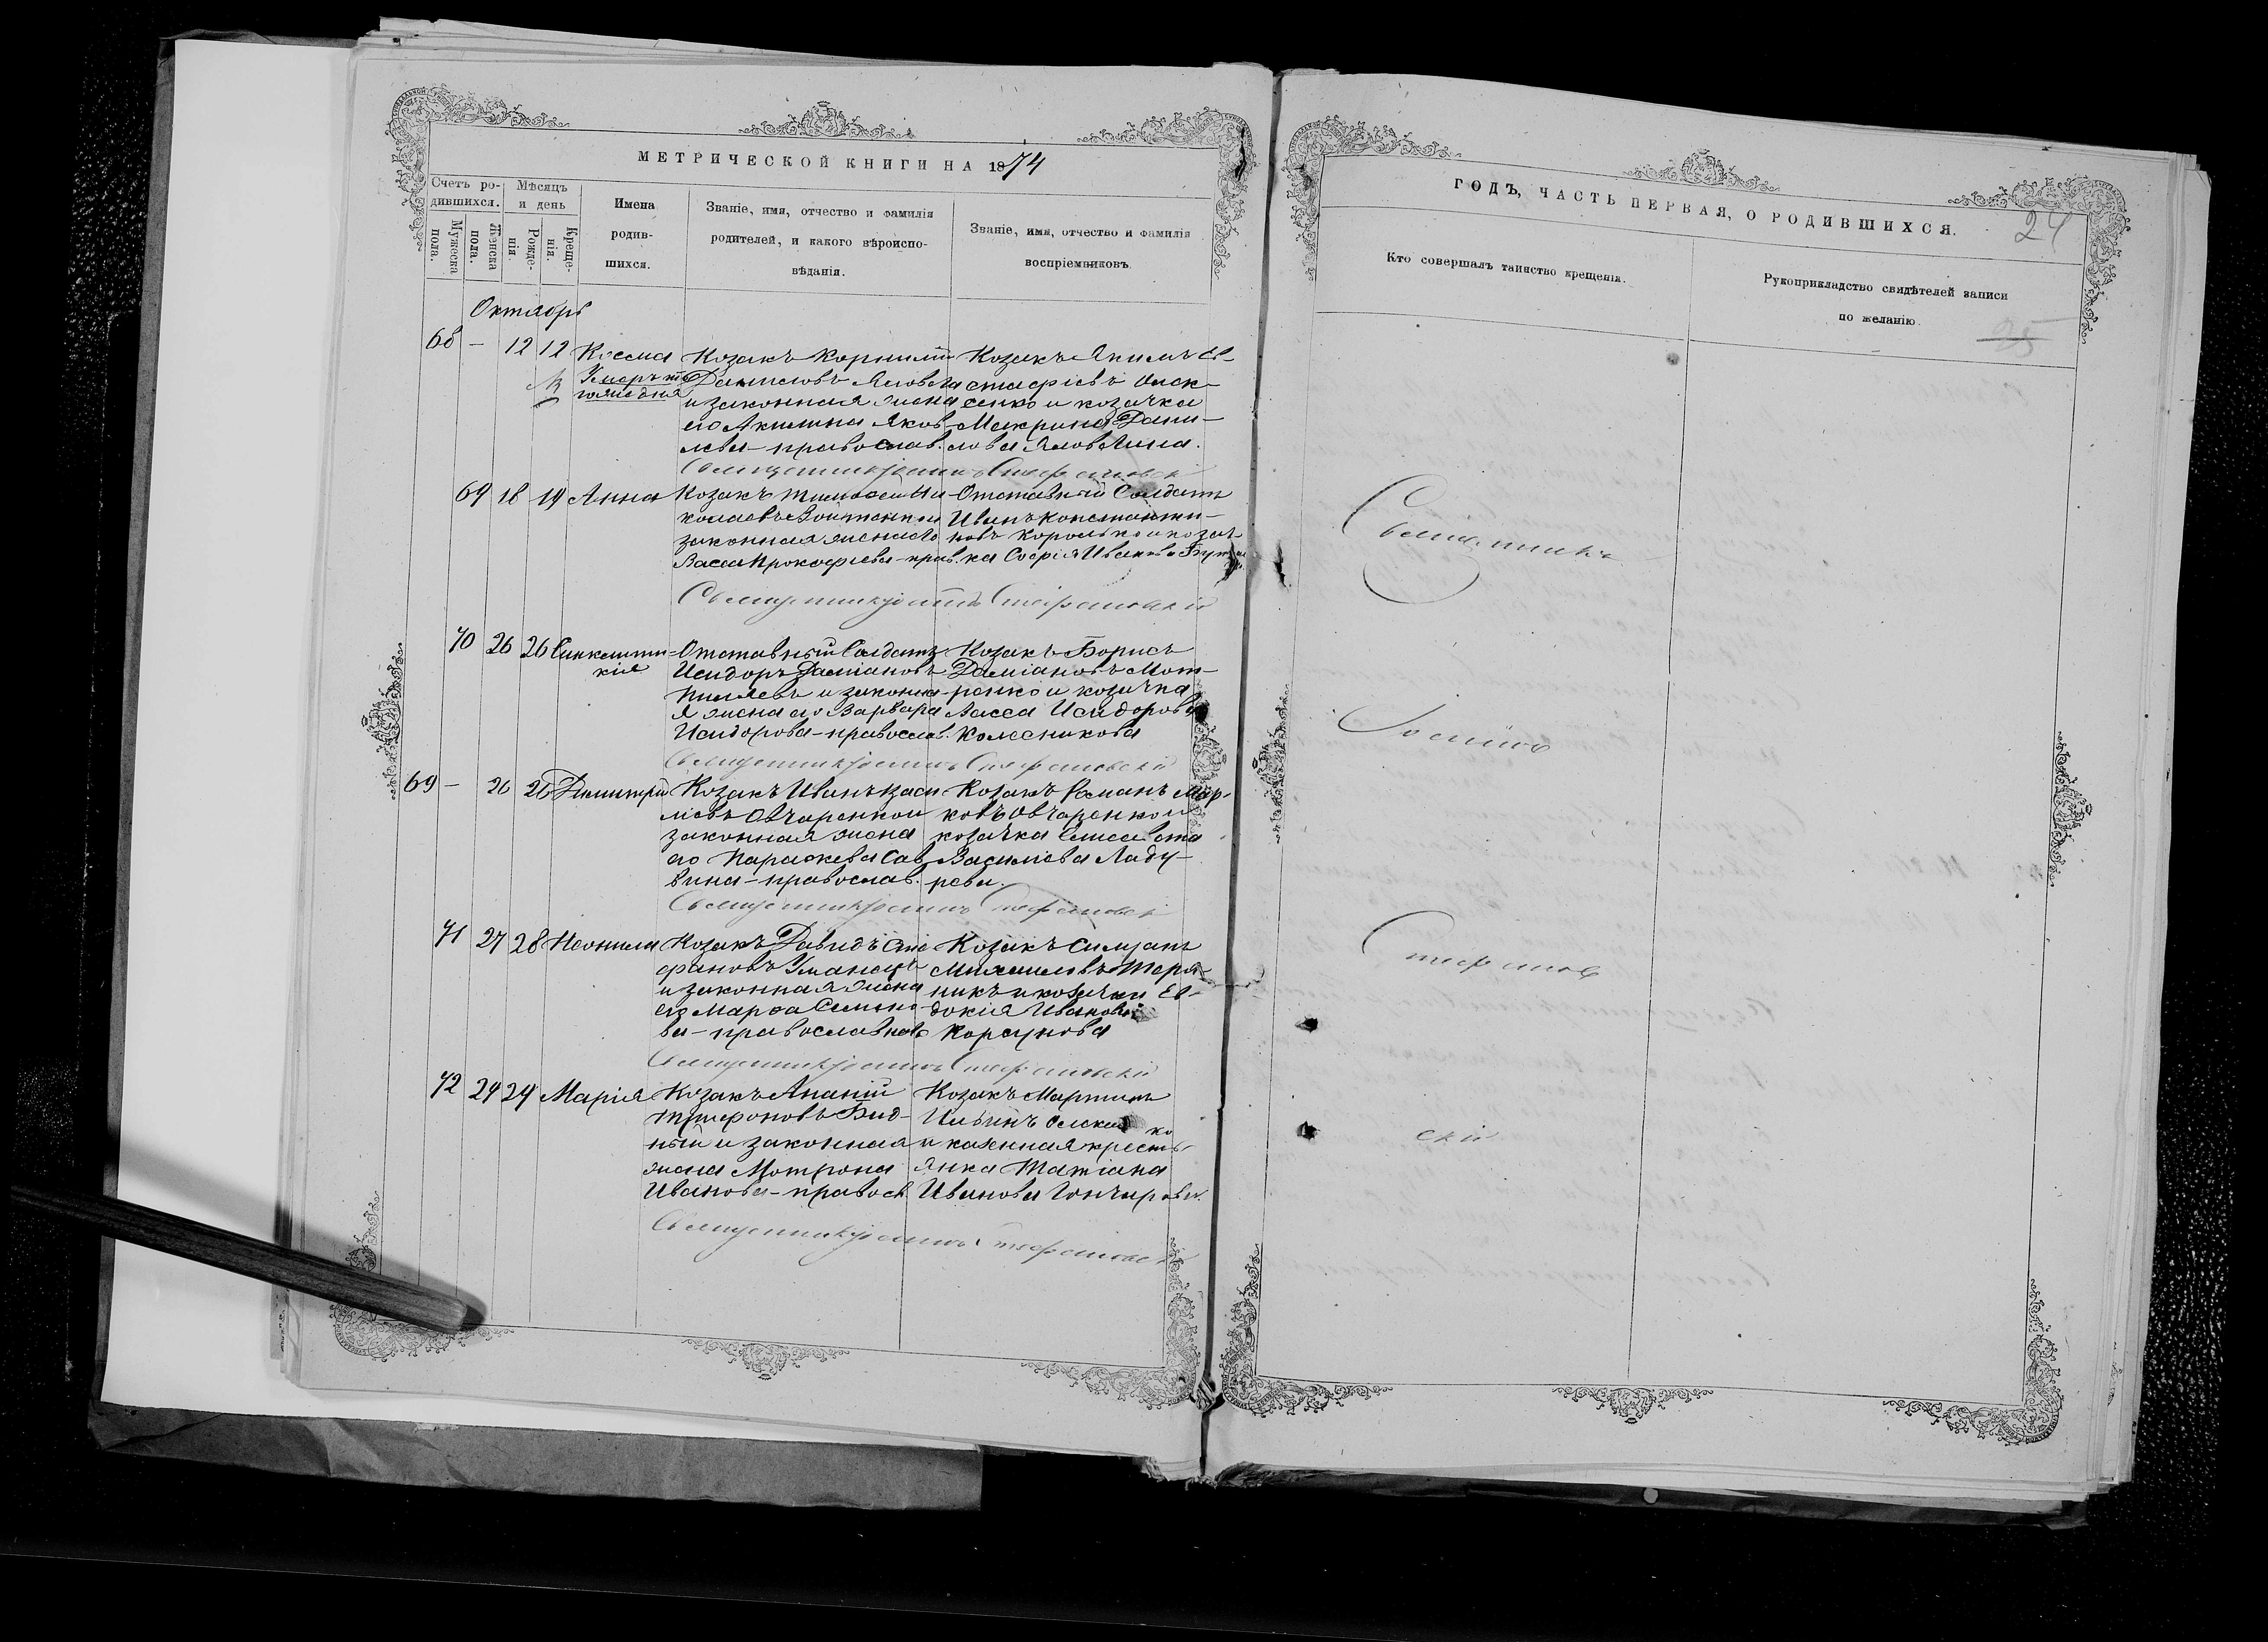 МЕТРИЧЕСКОЙ КНИГИ НА 1874
Счетъ ро-
дившихся.
Мужеска
пола.
Женска
пола.
Мѣсяцъ
и день
Рожде-
нія.
Креще-
нія.
Имена
родив-
шихся.
Званіе, имя, отчество и фамилія
родителей, и какого вѣроиспо-
вѣданія.
Званіе, имя, отчество и фамилія
воспріемниковъ.
Октябрь
68 - 12 12 Косма
Умеръ
тогоже дня
Козакъ Корнилій
Даниловъ
и законная жена
его Акилина Яков-
лева - православ.
Козакъ Якимъ Ев-
стафіевъ
и козачка
Макрина Дани-
лова
69 18 19 Анна
Козакъ Тимофей Ни-
колаевъ Войтенко и
законная жена его
Васса Прокофіева - прав.
Отставный Солдатъ
Иванъ Константи-
новъ Королько и козач-
ка Софія Иванова
Священникъ Іоаннъ Стефановскій
70 26 26 Синклити-
кія
Отставный Солдатъ
Исидоръ Даміановъ
и законна-
я жена его Варвара
Исидорова - православ.
Козакъ Борисъ
Даміановъ Мот-
ренко и козачка
Васса Исидорова
Колесникова
Священникъ Іоаннъ Стефановскій
69 - 26 26 Димитрій
Козакъ Иванъ Васи-
ліевъ Овчаренко и
законная жена
его Параскева Сав-
вина - православ.
Козакъ Романъ Мар-
ковъ Овчаренко и
козачка Елисавета
Василіева Ладу-
рева.
Священникъ Іоаннъ Стефановскій
71 27 28 Неонила
Козакъ Давидъ Сте-
фановъ Уманецъ
и законная жена
его Марѳа Семено-
ва - православнаго
Козакъ
Михаиловъ
и козачка Ев-
докія Иванова
Корсунова
Священникъ Іоаннъ Стефановскій
72 29 29 Марія
Козакъ Ананій
Трифоновъ Бид-
ный и законная
жена Мотрона
Иванова - правосл.
Козакъ Мартинъ
Ильинъ
и казенная кресть-
янка Татіана
Иванова Гончарова.
Священникъ Іоаннъ Стефановскій
ГОДЪ, ЧАСТЬ ПЕРВАЯ, О РОДИВШИХСЯ.
24
Кто совершалъ таинство крещенія.
Рукоприкладство свидѣтелей записи
по желанію.
25
Священникъ
Іоаннъ
Стефанов
скій